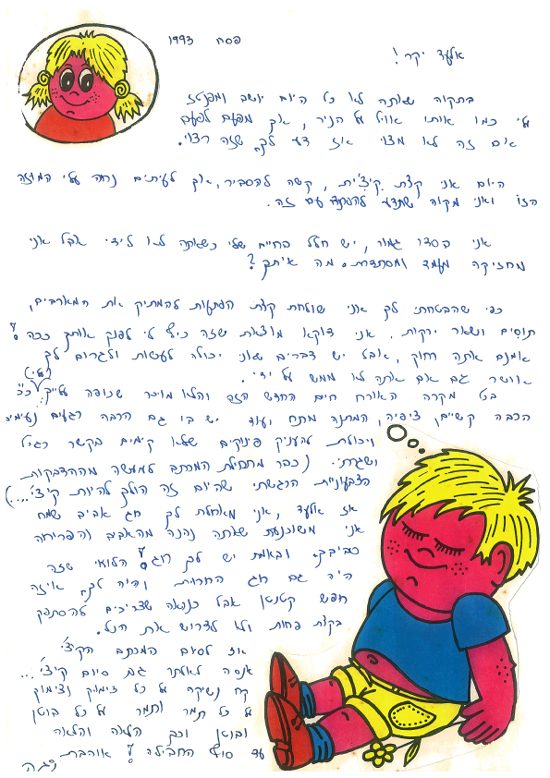 פסח 1993
אלעד יקר!
בתקוה שאתה לא כל היום יושב ומפנטז
עלי כמו אותו אויל על הניר, אך מפעם לפעם
אם זה לא מצוי אז דע לך שזה רצוי.
היום אני קצת קיצ'ית, קשה להסביר, אך לעיתים נחה עלי המוזה
הזו ואני מקוה שתדע להתמודד עם זה.
אני בסדר גמור, יש חלל בחיים שלי כשאתה לא לידי אבל אני
מחזיקה מעמד ומסתדרת. מה איתך?
כפי שהבטחתי לך אני שולחת קצת הפתעות להמתיק את המארבים,
תוסים ושאר ירקות. אני דוקא מוצאת שזה כיף לי לפנק אותך ככה!
אומנם אתה רחוק, אבל יש דברים שאני יכולה לעשות ולגרום לך
אושר גם אם אתה לא ממש על ידי. (עלי)
בכל מקרה האורח חיים החדש הזה והלא מוכר שכופה עלייך כ"כ
הרבה קשיים, ציפיה, המתנה מתח ועוד יש בו גם הרבה רגעים נעימים
ויכולת להעניק פינוקים שלא קימים בקשר רגיל
ושגרתי. (כבר מתחילת המכתב לממשה מההדבקות
הצבעוניות הרגשתי שהיום זה הולך להיות קיצ'י...)
אז אלעד, אני מאחלת לך חג אביב שמח
אני משוכנעת שאתה נהנה מהאביב והפריחה
סביבך. ובאמת יש לך חג! הלואי שזה
היה גם חג החרות והיה לך איזה
חופש קטנטן אבל כנראה שצריכים להסתפק
בקצת פחות ולא לדרוש את הכל.
אז לסיום המכתב הקיצ'י
אנסה לאלתר גם סיום קיצ'י...
קח נשיקה על כל צימוק וצימוק
על כל תמר ותמר על כל בוטן
ובוטן וכך הלאה והלאה
עד סוף החבילה! אוהבת
נגה